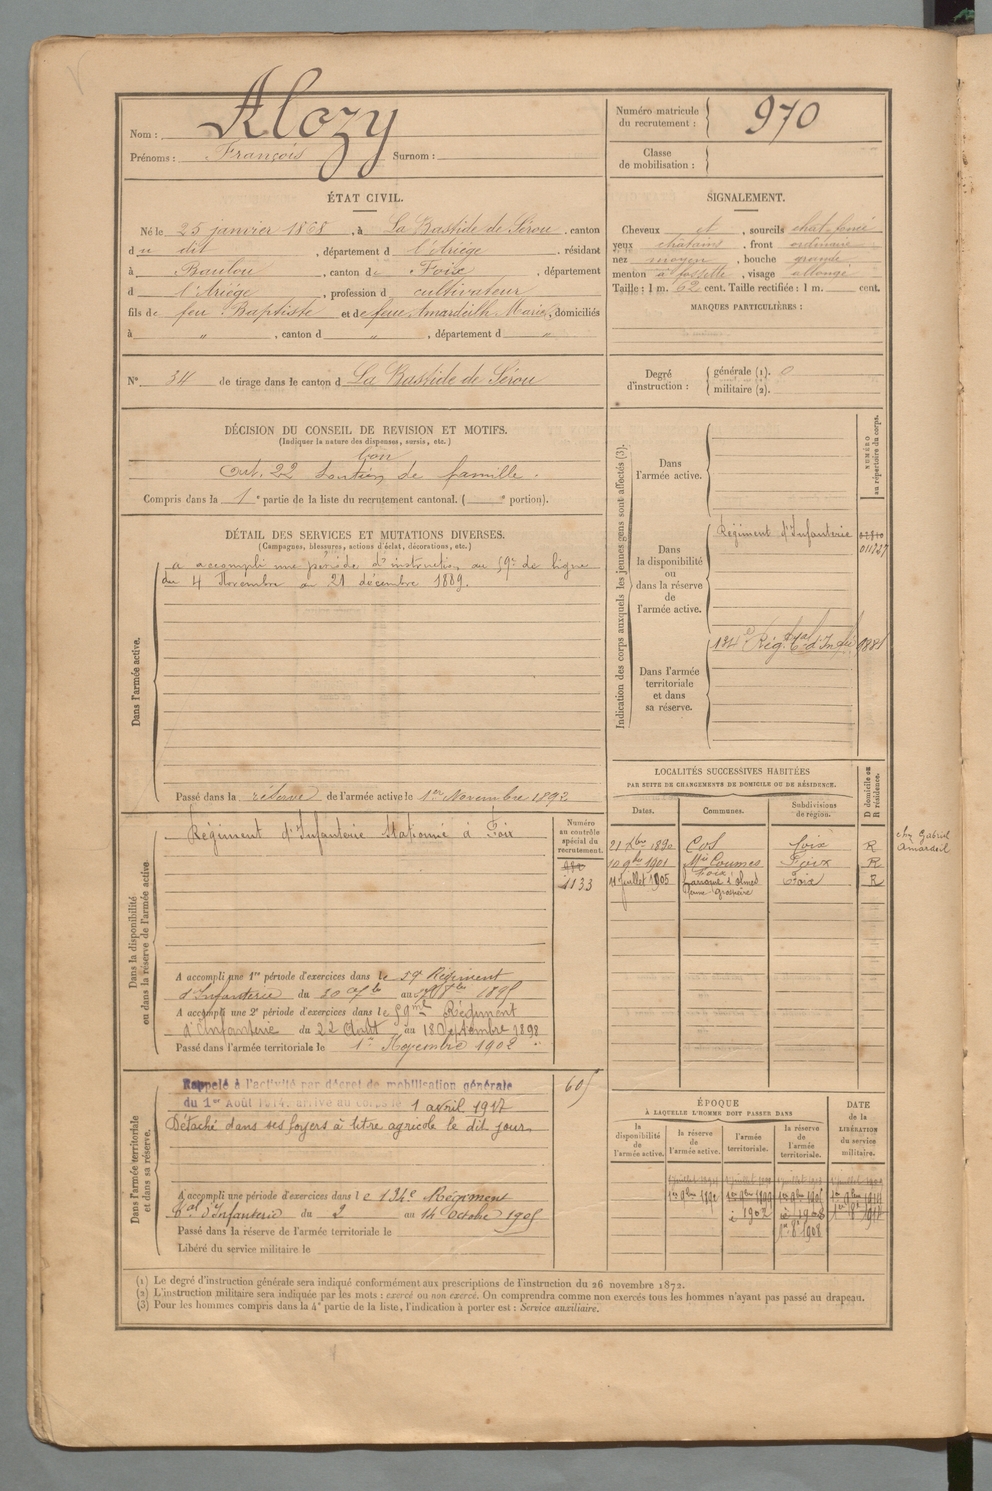 Nom : Alozy
Prénoms : François Surnom :
Numéro matricule du recrutement : 970
Classe de mobilisation :
ÉTAT CIVIL.
Né le 25 janvier 1868, à La Bastide de Sérou, canton
du dit, département d l'Ariège, résidant
à Baulou, canton de Foix, département
d l'Ariège, profession d cultivateur
fils de feu Baptiste et de feue Amardeilh Marie, domiciliés
à " , canton d " , département d "
N° 34 de tirage dans le canton d La Bastide de Sérou
SIGNALEMENT.
Cheveux et, sourcils chat. foncé
yeux châtains, front ordinaire
nez moyen, bouche grande
menton à fossette, visage allongé
Taille : 1 m. 62 cent. Taille rectifiée : 1 m. cent.
MARQUES PARTICULIÈRES :
Degré d'instruction : générale (1). 0
militaire (2).
DÉCISION DU CONSEIL DE REVISION ET MOTIFS.
(Indiquer la nature des dispenses, sursis, etc.)
bon
Art. 22 Soutien de famille.
Compris dans la 1e partie de la liste du recrutement cantonal. ( e portion).
DÉTAIL DES SERVICES ET MUTATIONS DIVERSES.
(Campagnes, blessures, actions d'éclat, décorations, etc.)
Dans l'armée active.
a accompli une période d'instruction au 59e de ligne
du 4 Novembre au 21 décembre 1889.
Passé dans la réserve de l'armée active le 1er Novembre 1892
Indication des corps auxquels les jeunes gens sont affectés (3).
NUMÉRO au répertoire du corps.
Dans l'armée active.
Dans la disponibilité ou dans la réserve de l'armée active.
Régiment d'Infanterie
011727
Dans l'armée territoriale et dans sa réserve.
134e Rég. tal d'Infie 9881
LOCALITÉS SUCCESSIVES HABITÉES
PAR SUITE DE CHANGEMENTS DE DOMICILE OU DE RÉSIDENCE.
D domicile ou R résidence.
Dates. Communes. Subdivisions de région.
21 Xbre 1890 Cos Foix R chez Gabriel Amardeil
10 9bre 1901 Mis Coumes Foix Foix R
11 Juillet 1905 Foix R
Dans la disponibilité ou dans la réserve de l'armée active
Numéro au contrôle spécial du recrutement.
Régiment d'Infanterie stationné à Foix
1133
A accompli une 1re période d'exercices dans le 59e Régiment
d'Infanterie du 30 au
A accompli une 2e période d'exercices dans le 59me Régiment
d'Infanterie du 22 Août au 18 Septembre 1898
Passé dans l'armée territoriale le 1er Novembre 1902
Dans l'armée territoriale et dans sa réserve.
Rappelé à l'activité par décret de mobilisation générale
du 1er Août 1914. arrivé au corps le 1 avril 1917
Détaché dans ses foyers à titre agricole le dit jour
605
A accompli une période d'exercices dans le 134e Régiment
tal d'Infanterie du 2 au 14 Octobre 1905
Passé dans la réserve de l'armée territoriale le
Libéré du service militaire le
ÉPOQUE
À LAQUELLE L'HOMME DOIT PASSER DANS
la disponibilité de l'armée active. la réserve de l'armée active. l'armée territoriale. la réserve de l'armée territoriale.
DATE de la LIBÉRATION du service militaire.
1er 9bre 1892 1er 9bre 1899
1902 1908
1er 8e 1908
(1) Le degré d'instruction générale sera indiqué conformément aux prescriptions de l'instruction du 26 novembre 1872.
(2) L'instruction militaire sera indiquée par les mots : exercé ou non exercé. On comprendra comme non exercés tous les hommes n'ayant pas passé au drapeau.
(3) Pour les hommes compris dans la 4e partie de la liste, l'indication à porter est : Service auxiliaire.